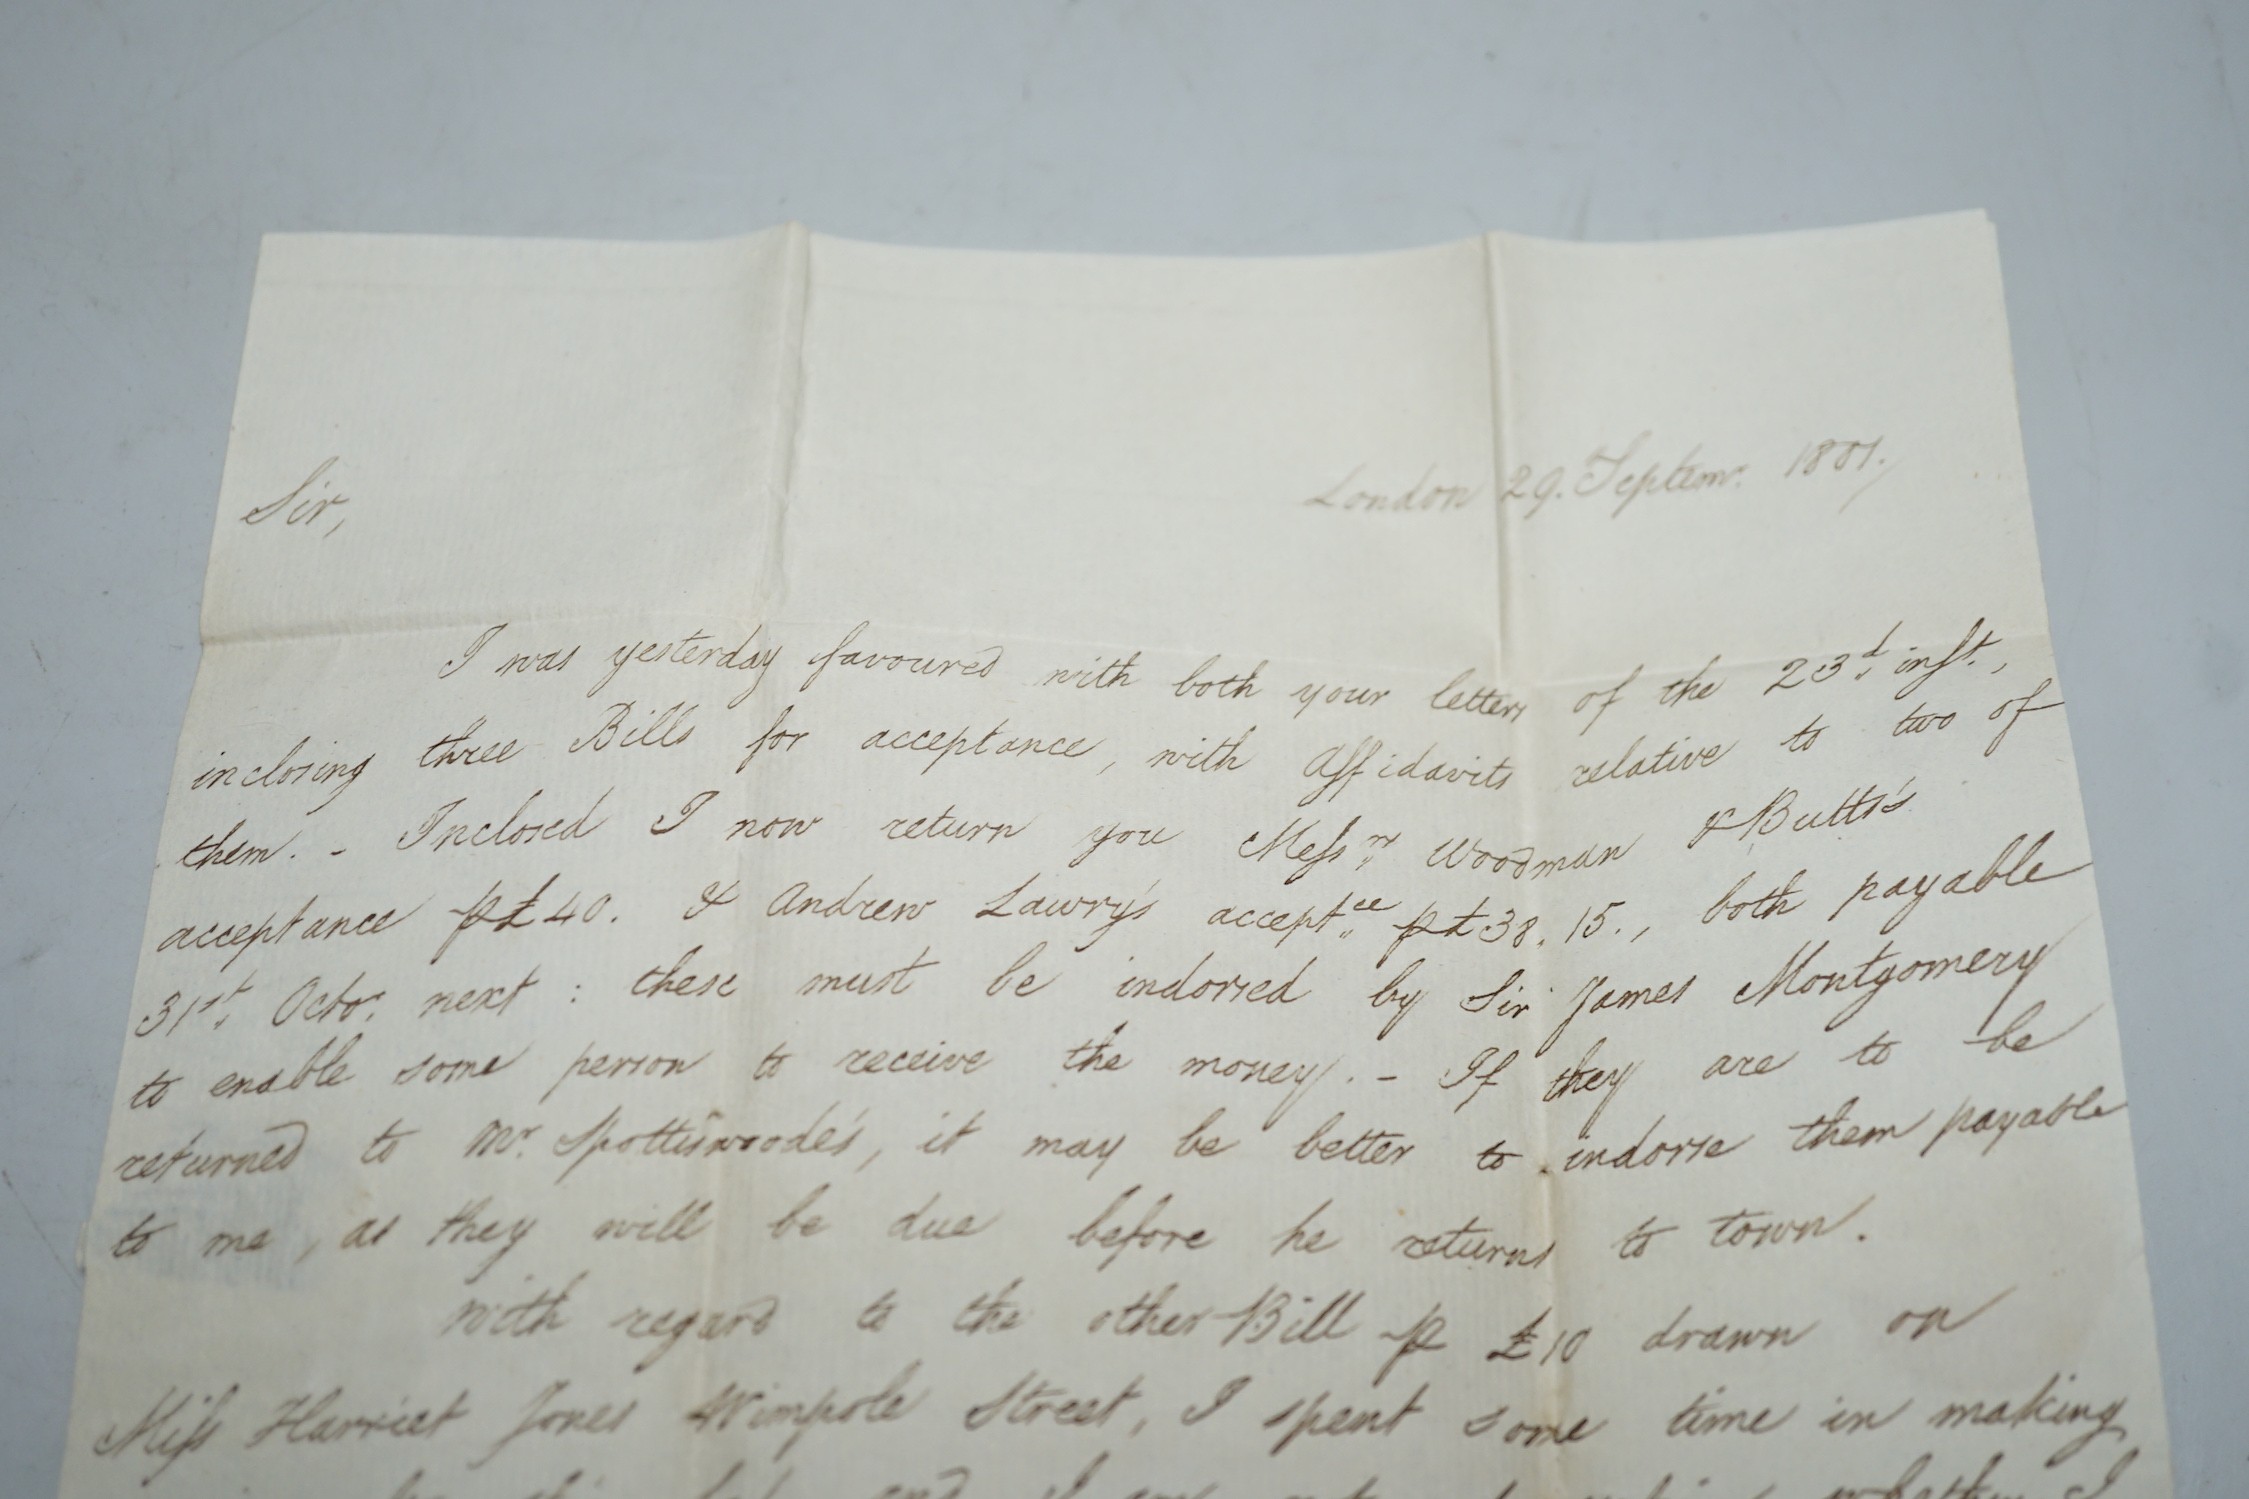 London 29. Septemr. 1801.
Sir,
I was yesterday favoured with both your letters of the 23d. inst.,
inclosing three Bills for acceptance, with Affidavits relative to two of
them. - Inclosed I now return you Messrs. Woodman & Butts's
acceptance p £40. & Andrew Lawry's acceptce. p £38. 15., both payable
31st. Octor. next : these must be indorsed by Sir James Montgomery
to enable some person to receive the money. - If they are to be
returned to Mr. Spottiswoode's, it may be better to indorse them payable
to me, as they will be due before he returns to town.
With regard to the other Bill p £10 drawn on
Miss Harriet Jones Wimpole Street, I spent some time in making
and I